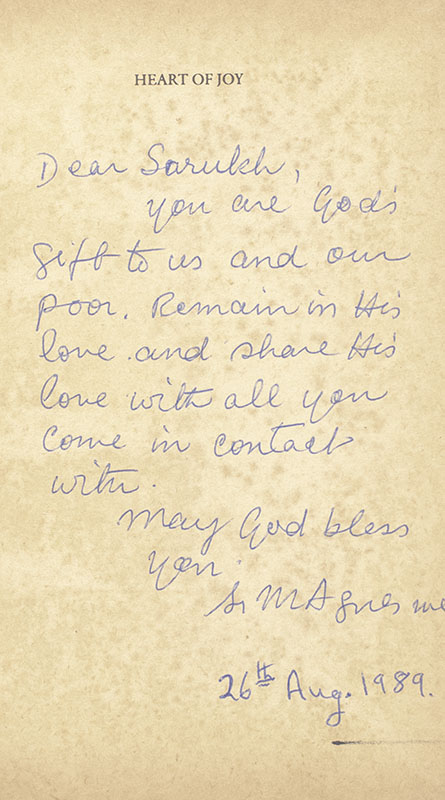 HEART OF JOY
Dear Sarukh,
you are God's
gift to us and our
poor. Remain in His
love and share His
love with all you
come in contact
with.
May God bless
you.
Sr M Agnes mc
26th Aug. 1989.